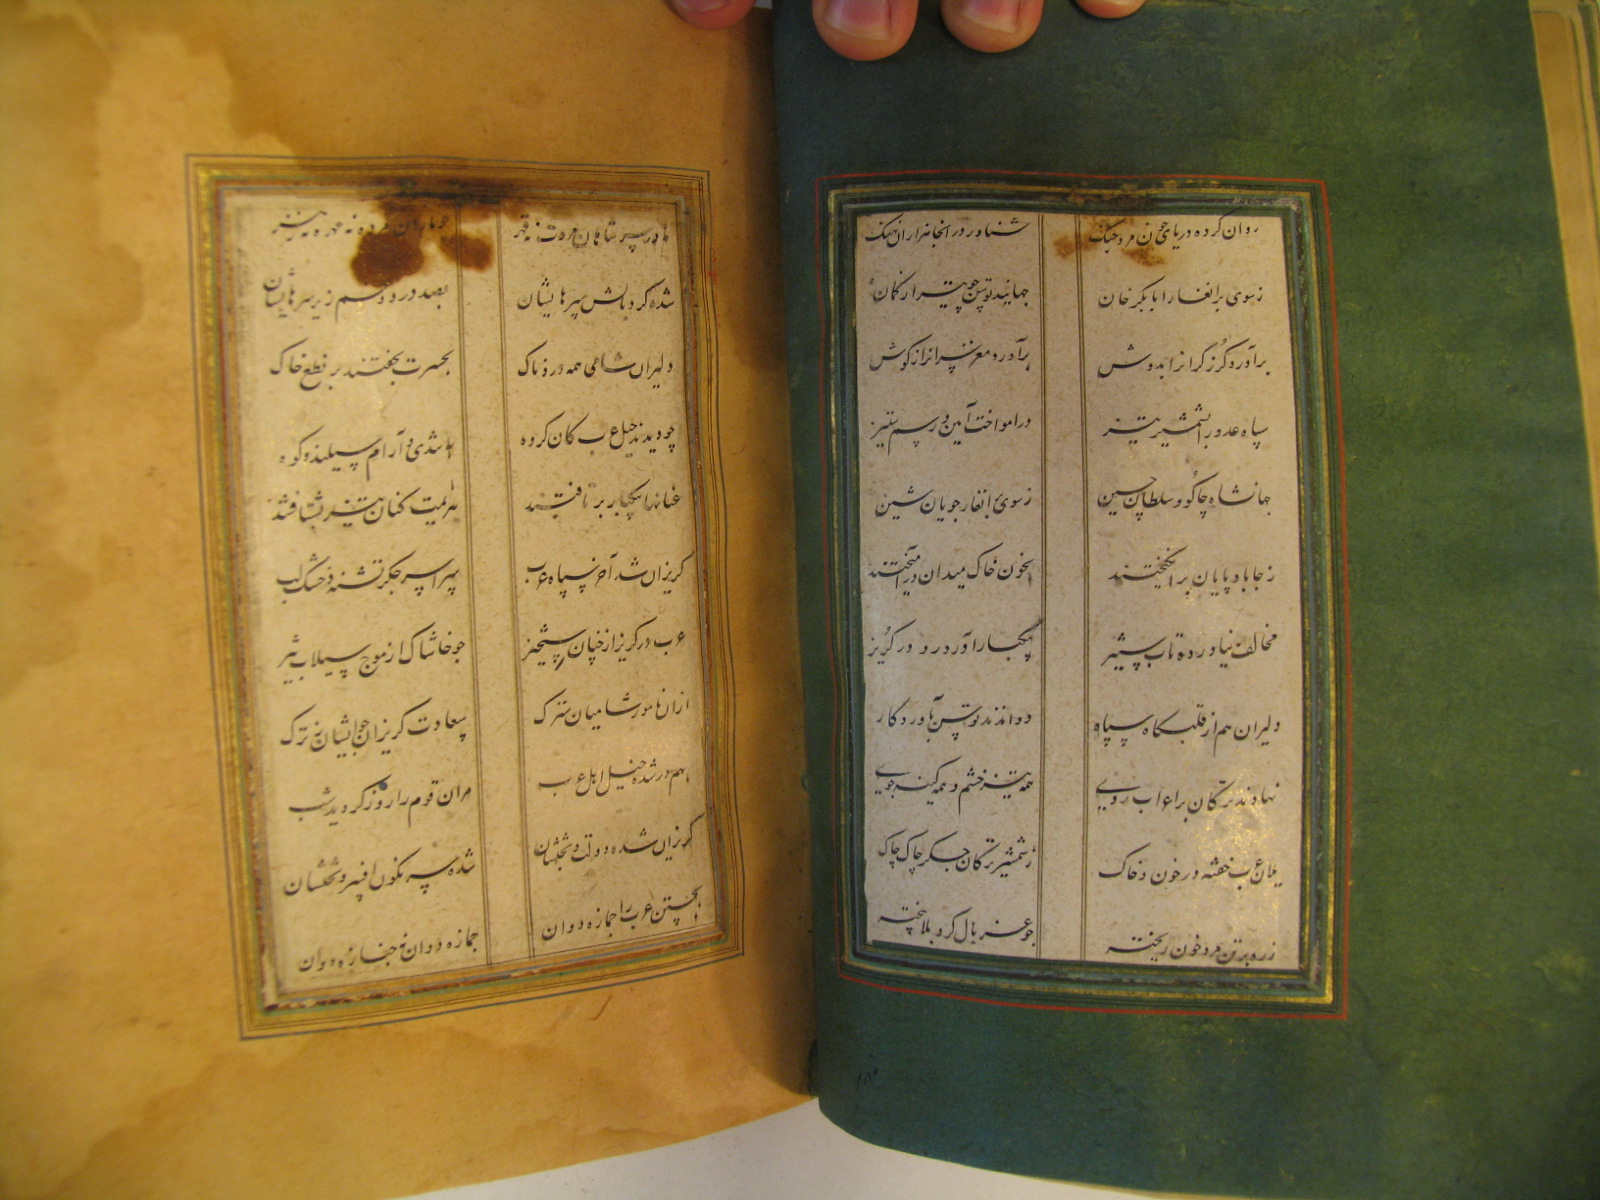 روان کرده دریای خون مرد جنگ شناور در آنجا هزاران نهنگ
ز سوی برانغار ابابکر خان جهانید توسن چو تیر از کمان
برآورد گرز گران را بدوش برآورد مغز سران را ز گوش
سپاه عدو را بشمشیر تیز درآموخت آیین و رسم ستیز
جهانشاه چاکو و سلطان حسین ز سوی جوانغار جویان شین
ز جا بادپایان برانگیختند بخون خاک میدان درآمیختند
مخالف نیاورده تاب ستیز بیکبار آورد رو در گریز
دلیران هم از قلبگاه سپاه دواندند توسن
نهادند ترکان براعراب روی همه تیز خشم و همه کینه جوی
یلان عرب خفته در خون و خاک ز شمشیر ترکان جگر چاک چاک
زره بر تن مرد خون ریخته چو غربال گرد بلا بیخته
شده گرد بالش سپرهایشان بصد درد و غم زیر سرهایشان
دلیران شامی همه دردناک بحسرت بخفتند بر نطع خاک
چو دیدند خیل عرب کان گروه
عنانها بیکبار برتافتند هزیمت کنان تیز بشتافتند
گریزان شد آخر سپاه عرب سراسر جگر تشنه و خشک لب
عرب در گریز از خیان رستخیز چو خاشاک از موج سیلاب تیز
ازان نامور شامیان سترک سعادت گریزان چو ایشان ز ترک
بهم در شده خیل اهل عرب مران قوم را روز گردید شب
گریزان شده دولت و بختشان شده سرنگون افسر و تختشان
بجستن عرب را جمازه دوان جمازه دوان نه جنازه دوان